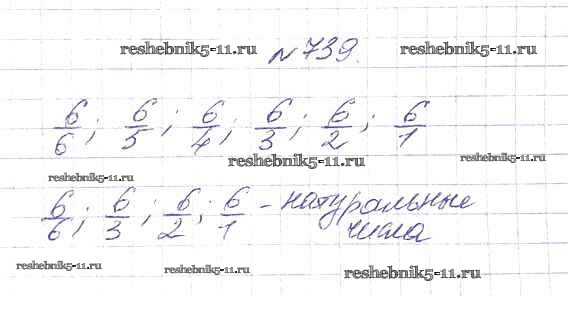 reshebnik5-11.ru №739. reshebnik5-11.ru
6/6; 6/5; 6/4; 6/3; 6/2; 6/1
reshebnik5-11.ru reshebnik5-11.ru
reshebnik5-11.ru
6/6; 6/3; 6/2; 6/1 - натуральные
числа
reshebnik5-11.ru reshebnik5-11.ru reshebnik5-11.ru